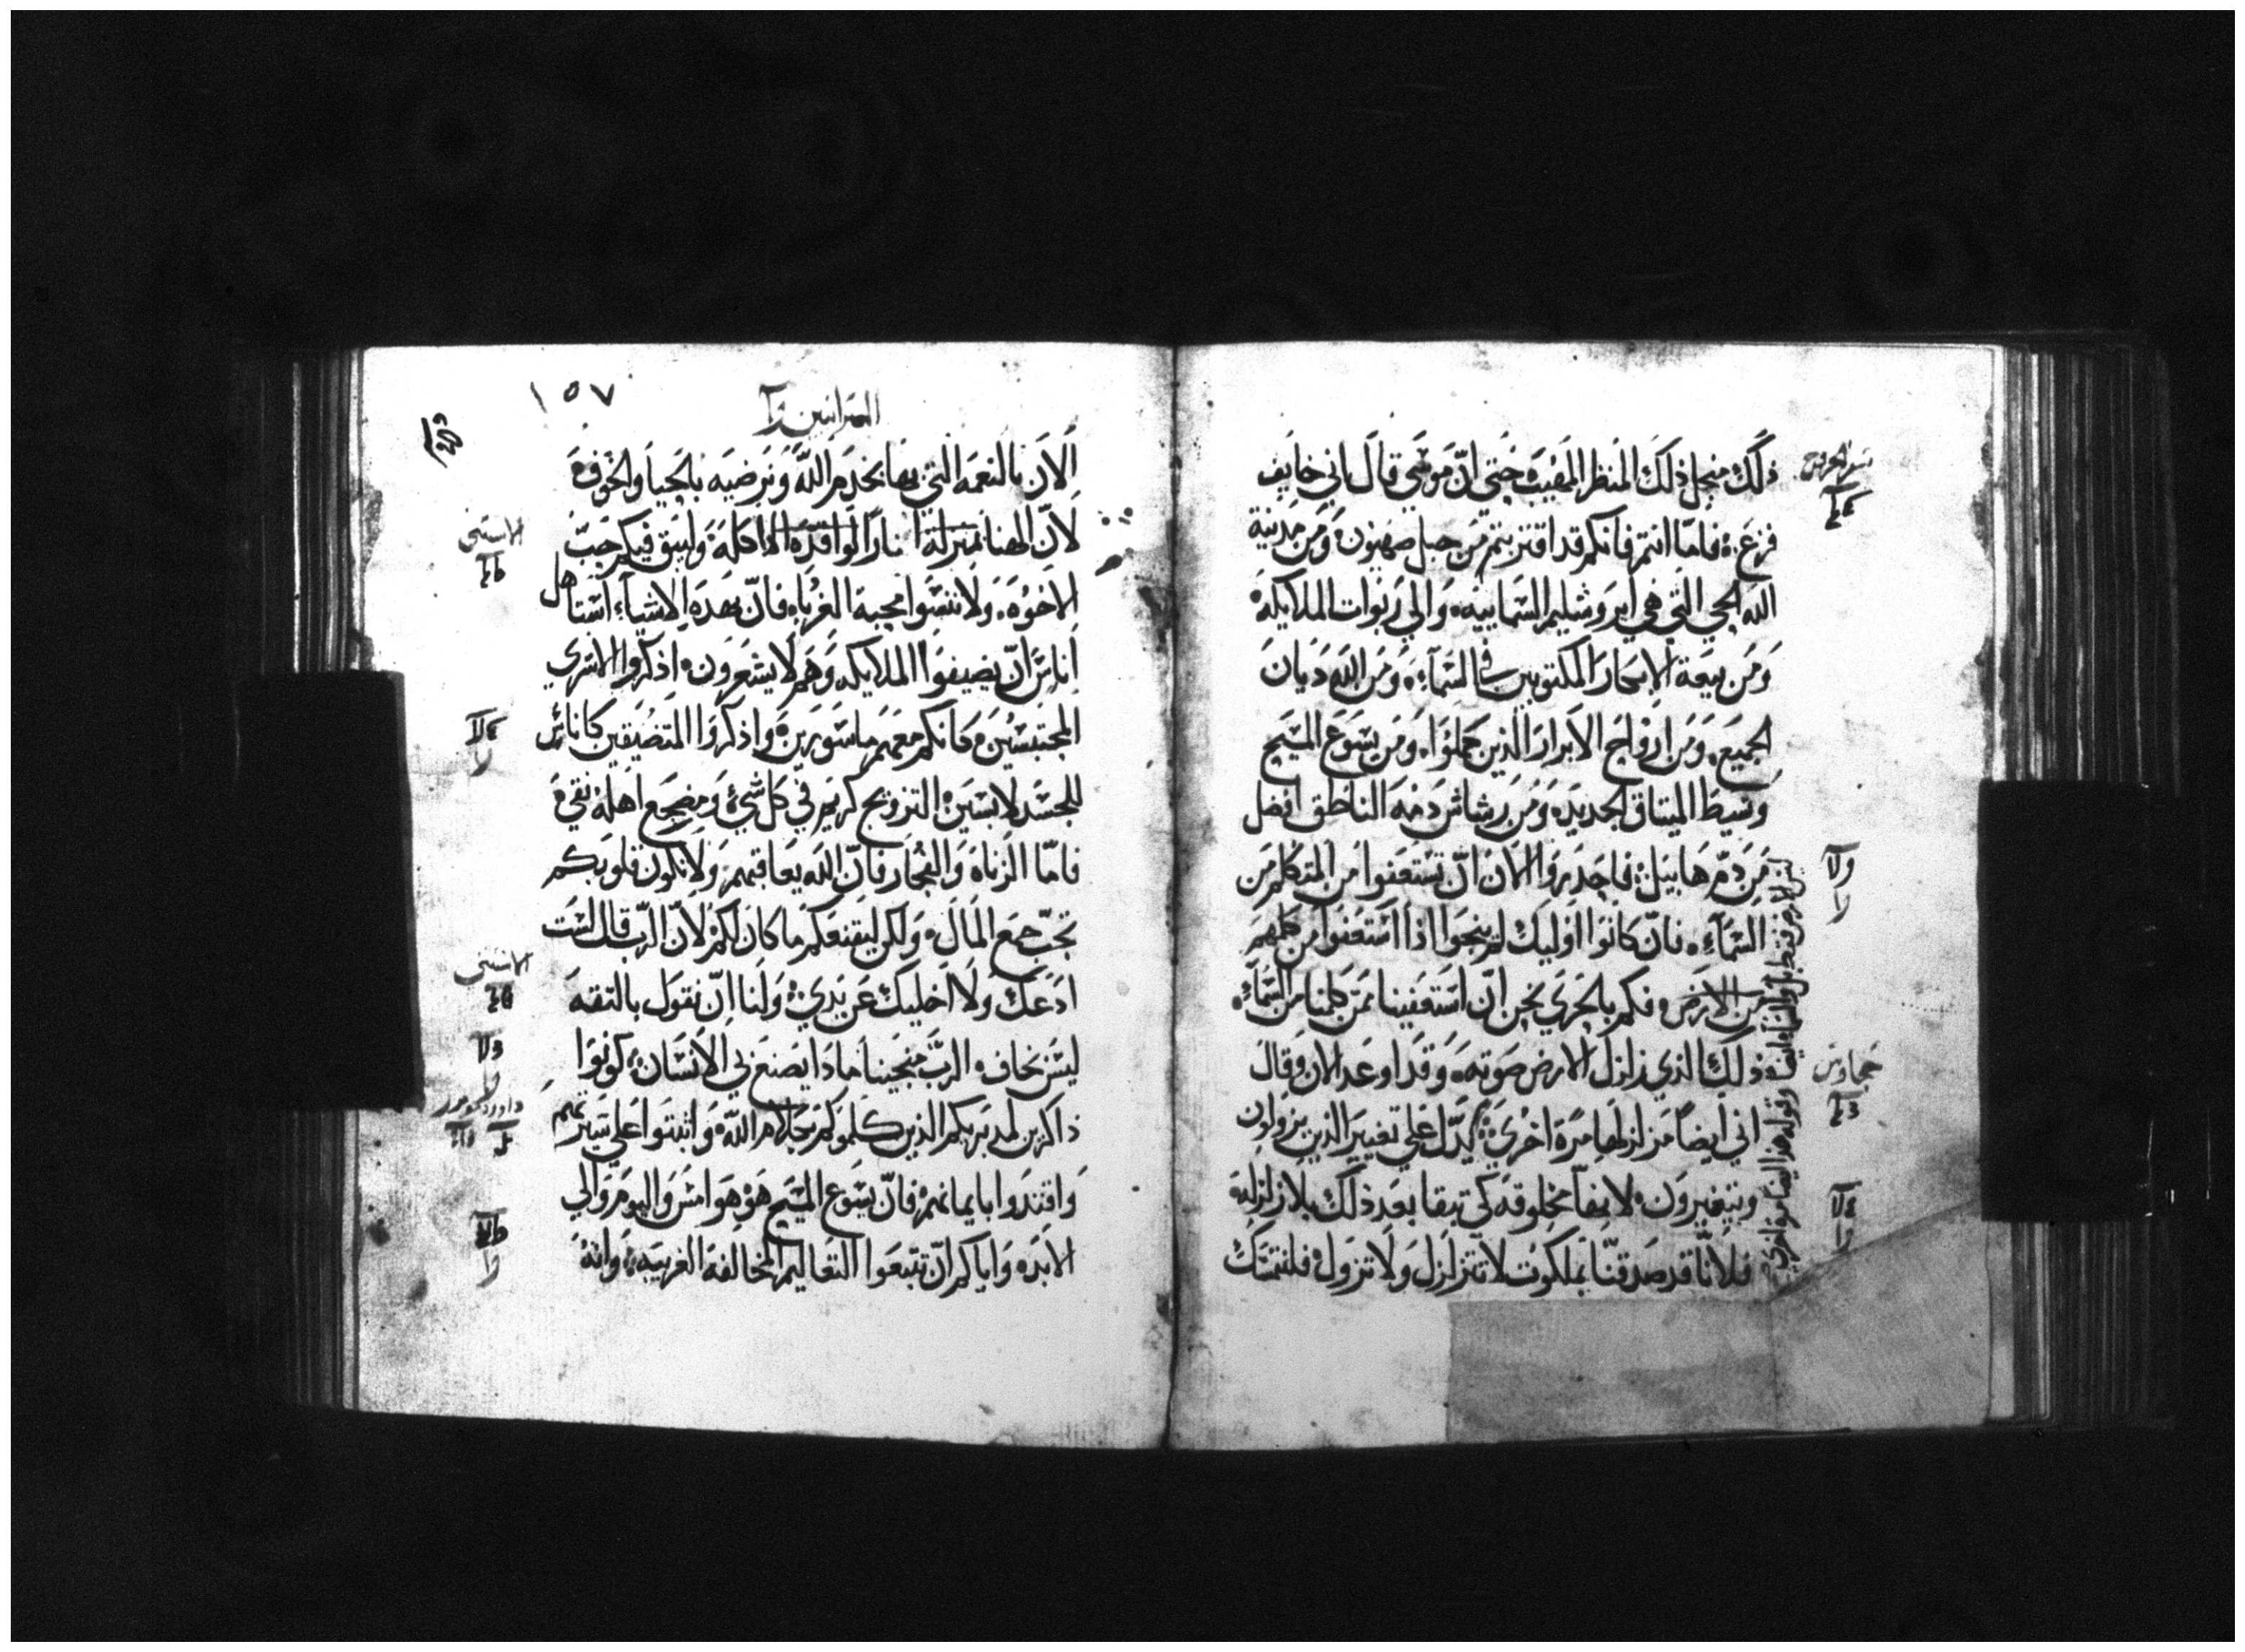 ذلك منجل ذلك المنظر المهيب حتي ان موسي قال باني خايف
فزع فاما انتم فانكم قد اقتربتم من جبل صهيون ومن مدينة
الله الحي التي هي ايروشليم السمايية والي ربوات الملايكة
ومن بيعة الابكار المكتوبين في السماء ومن الله ديان
الجميع ومن ارواح الابرار الذين كملوا ومن يسوع المسيح
وسيط الميثاق الجديده ومن رشاش دمه الناطق افضل
من دم هابيل فاحذروا الان ان تستعفوا من المتكلم من
السماء فان كانوا اوليك لم ينجوا اذا استعفوا من كلمهم
من الارض فكم بالحري نحن ان استعفينا ممن كلمنا من السماء
ذلك الذي زلزل الارض صوته وقد اوعد الان وقال
اني ايضا مزلزلها مرة اخري يدل علي تغيير الذين يزولون
ويتغيرون لانها مخلوقه كي تبقا بعد ذلك بلا زلزلة
فلانا قد صدقنا بملكوت لا تتزلزل ولا تزول فلنتمسك
ليس الارض فقط بل والسماء ايضا وقوله هذا ايضا مره اخري
١٥٧
العبرانيين
الان بالنعمه التي بها نخدم الله ونرضيه بالحيا والخوف
لان الهنا بمنزلة النار الواقدة الاكلة وليبق فيكم حب
الاخوه ولا تنسوا محبة الغرباء فان بهذه الاشياء استاهل
اناس ان يضيفوا الملايكه وهم لا يشعرون اذكروا الاسري
المحتبسين كانكم معهم ماسورين واذكروا المتضيقين كاناس
للجسد لابسين التزويج كريم في كل شي ومضجع اهله نقي
فاما الزناه والفجار فان الله يعاقبهم ولا تكون قلوبكم
تحب جمع المال ولكن ليقنعكم ما كان لكم لان الرب قال لست
ادعك ولا اخليك عن يدي ولنا ان نقول بالثقه
ليس نخاف الرب منجينا ماذا يصنع بي الانسان كونوا
ذاكرين لمدبريكم الذين كلموكم بكلام الله واثبتوا علي سيرتهم
واقتدوا بايمانهم فان يسوع المسيح هو هو امس واليوم والي
الابد واياكم ان تتبعوا التعاليم المخالفة الغريبه وانه